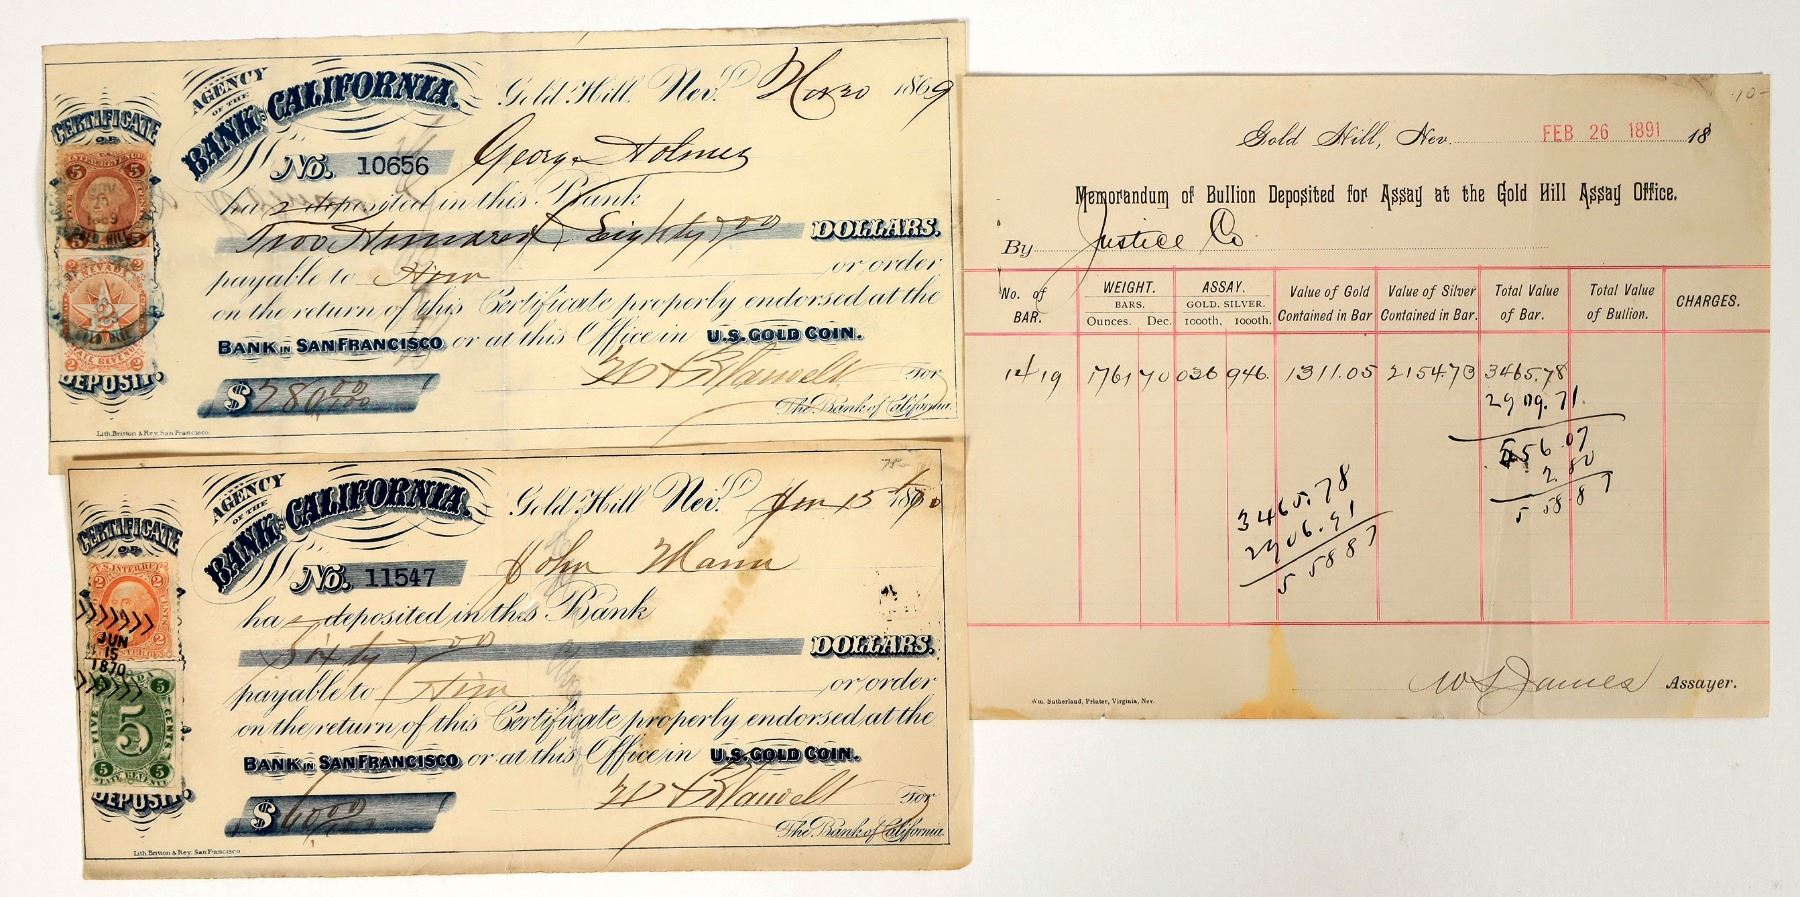 AGENCY
OF THE
BANK OF CALIFORNIA.
Gold Hill. Nev. Nov 20 1869
CERTIFICATE
OF
DEPOSIT.
No. 10656
George Holmes
has deposited in this Bank
Two Hundred & Eighty 00 DOLLARS.
payable to Him or order
on the return of this Certificate properly endorsed at the
BANK IN SAN FRANCISCO or at this Office in U.S. GOLD COIN.
$ 280 00/100
For
The Bank of California.
Lith. Britton & Rey. San Francisco.
U.S. INTER. REVENUE
5 5
NOV
20
1869
GOLD HILL
5 5
2 NEVADA 2
2
2 STATE REVENUE 2
75-
AGENCY
OF THE
BANK OF CALIFORNIA.
Gold Hill Nev. Jun 15 1870
CERTIFICATE
OF
DEPOSIT.
No. 11547
John Mann
has deposited in this Bank
Sixty 00 DOLLARS.
payable to Him or order
on the return of this Certificate properly endorsed at the
BANK IN SAN FRANCISCO or at this Office in U.S. GOLD COIN.
$ 60 00/100
For
The Bank of California.
Lith. Britton & Rey. San Francisco.
U.S. INTER. REV
2 2
JUN
15
1870
NEVADA
5 5
FIVE 5 CENTS
5 5
STATE REVENUE
-10-
Gold Hill, Nev. FEB 26 1891 18
Memorandum of Bullion Deposited for Assay at the Gold Hill Assay Office.
By Justice Co
No. of BAR. WEIGHT. BARS. Ounces. Dec. ASSAY. GOLD. SILVER. 1000th. 1000th. Value of Gold Contained in Bar Value of Silver Contained in Bar. Total Value of Bar. Total Value of Bullion. CHARGES.
14/19 1761 70 036 946. 1311.05 2154.73 3465.78
2909.71
556.07
2 80
558 87
3465.78
2906.91
558 87
W S James Assayer.
Wm. Sutherland, Printer, Virginia, Nev.